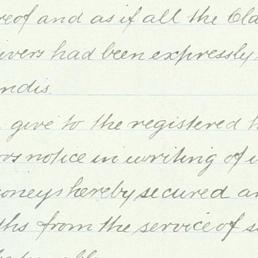 reof and as if all the Cla
ivers had been expressly
ndis.
give to the registered h
ors notice in writing of i
oneys hereby secured an
ths from the service of s